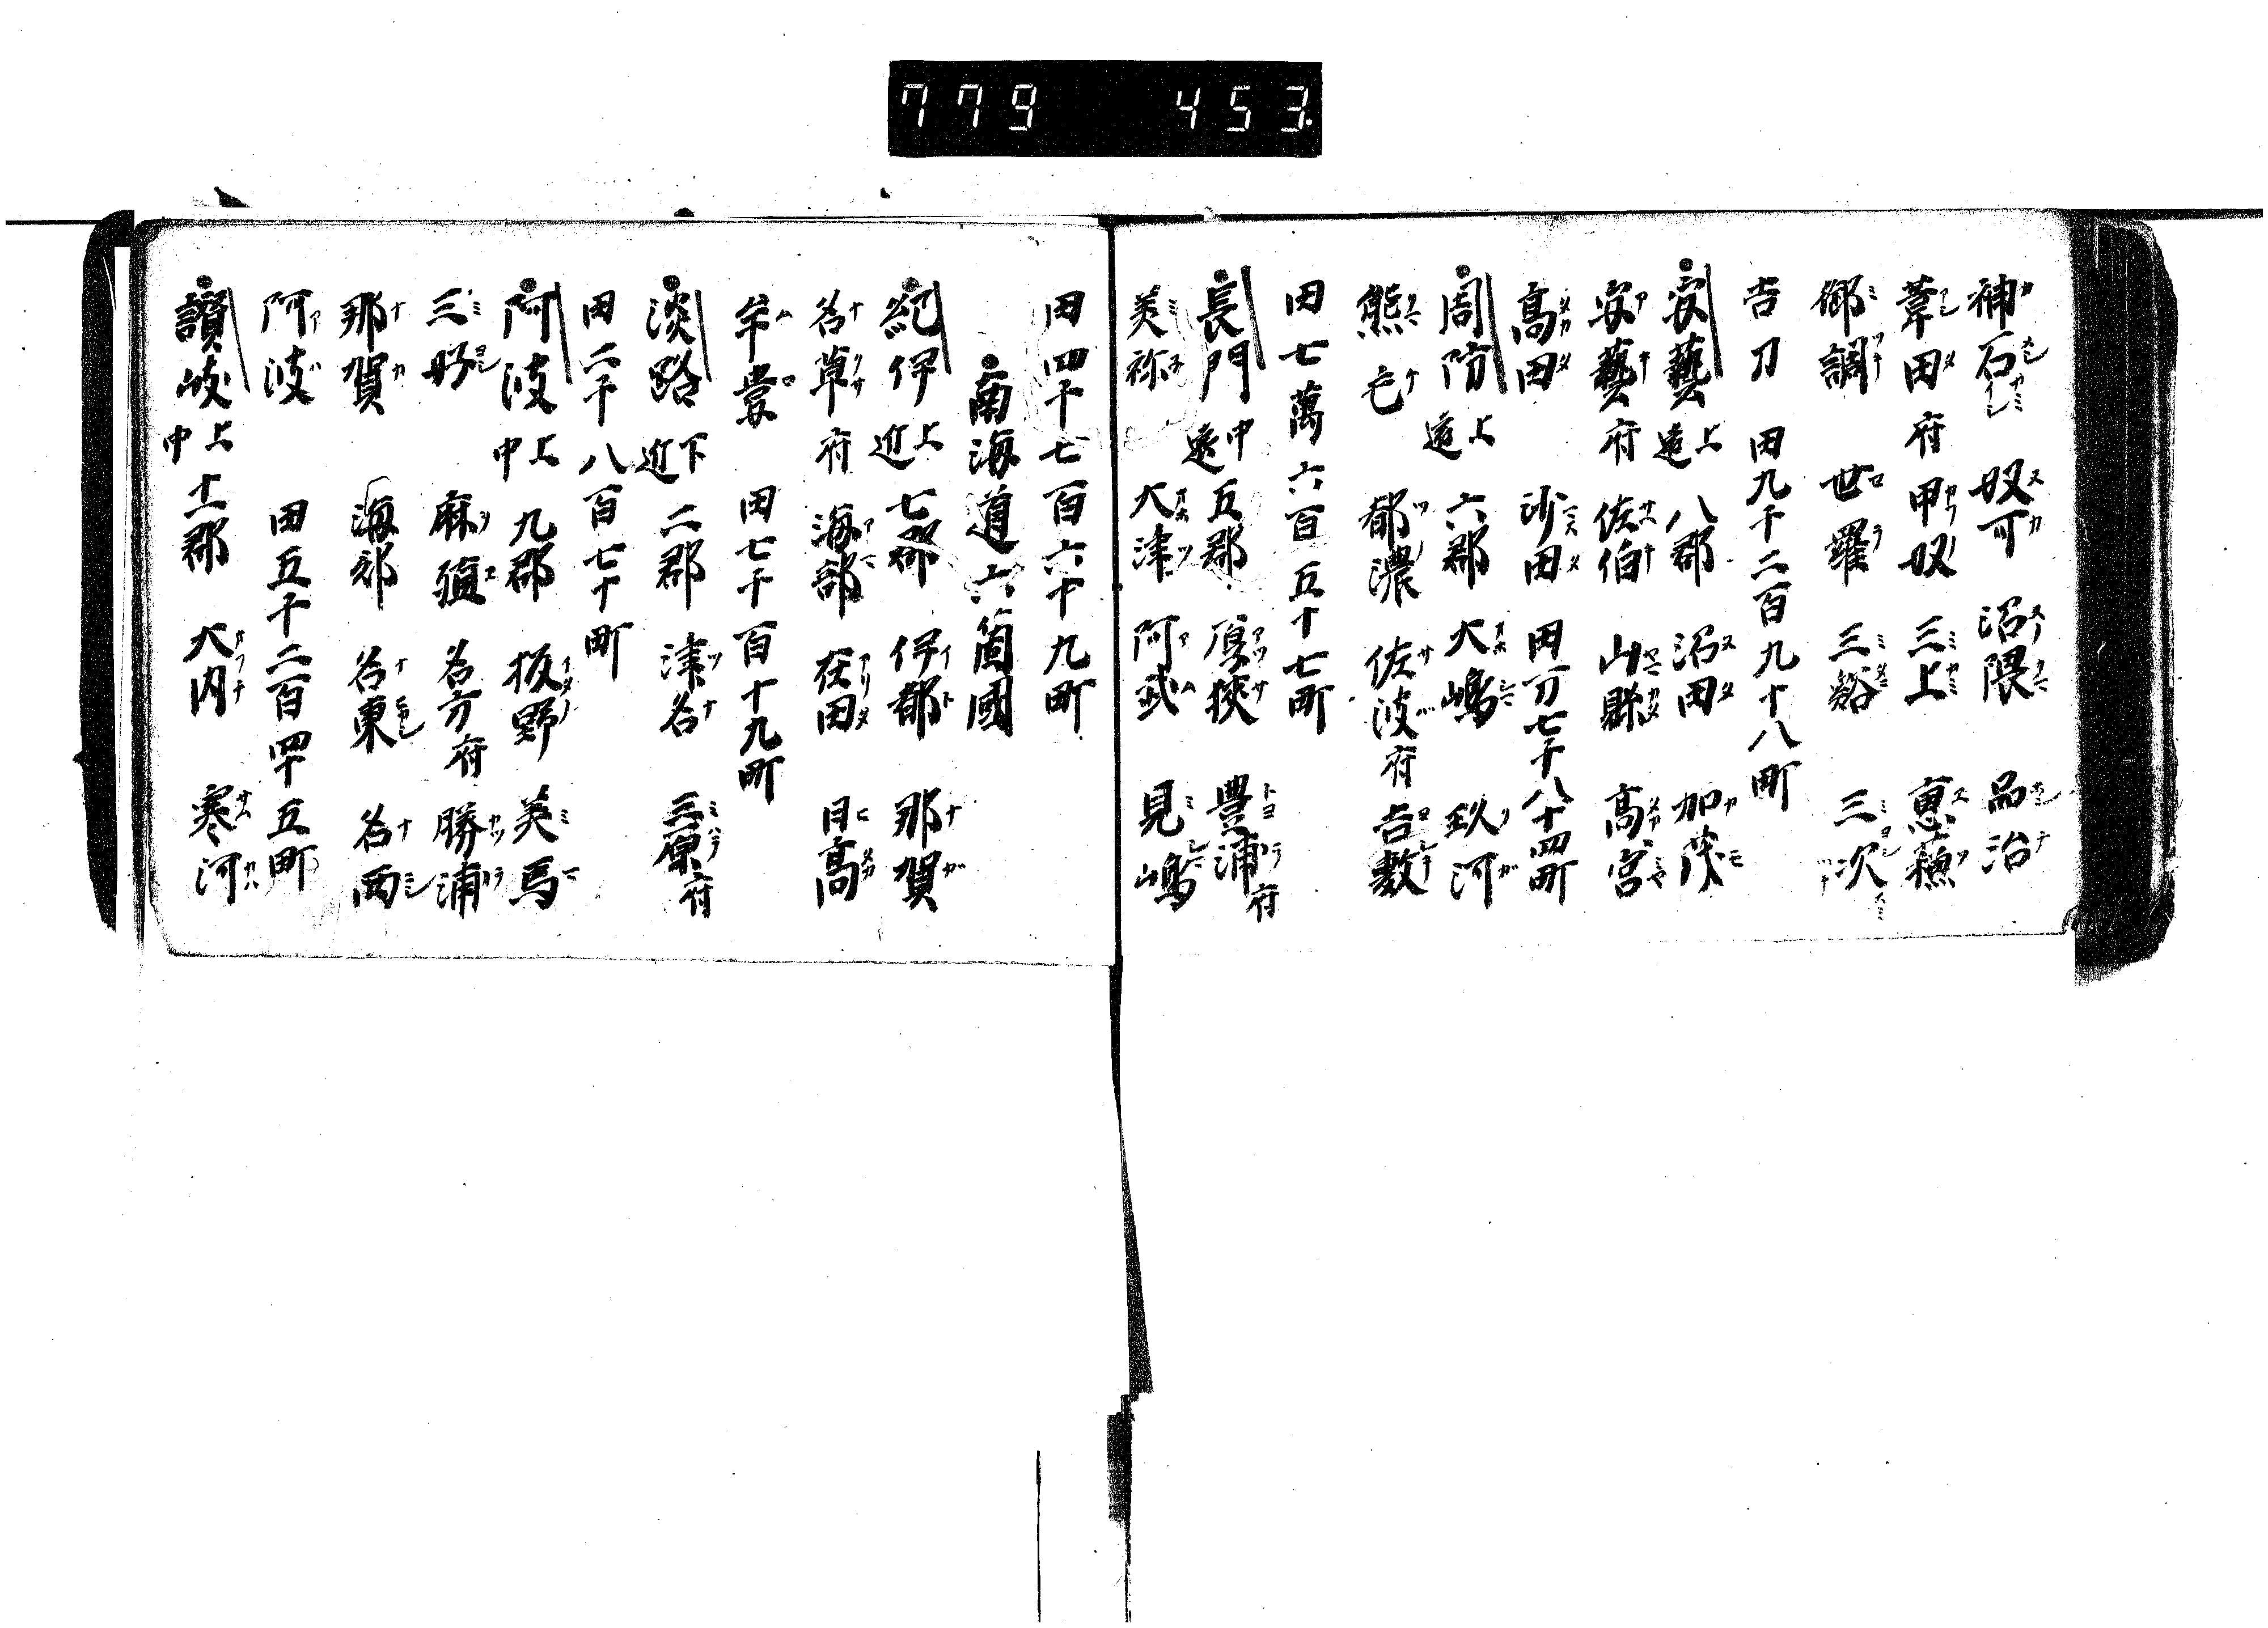 779 453.
神石 奴可 沼隈 品治
葦田府 甲奴 三上 恵蘓
御調 世羅 三谿 三次
吉刀 田九千二百九十八町
安藝上遠 八郡 沼田 加茂
安藝府 佐伯 山縣 高宮
高田 沙田 田万七千八十四町
周防上遠 六郡 大嶋 玖河
熊毛 都濃 佐波府 吉敷
田七萬六百五十七町
長門中遠 五郡 厚狹 豊浦府
美祢 大津 阿武 見嶋
田四千七百六十九町
南海道六箇國
紀伊上近 七郡 伊都 那賀
名草府 海部 在田 日高
牟婁 田七千百十九町
淡路下近 二郡 津名 三原府
田二千八百七十町
阿波上中 九郡 板野 美馬
三好 麻殖 名方府 勝浦
那賀 海部 名東 名西
阿波 田五千二百四十五町
讃岐上中 十一郡 大内 寒河